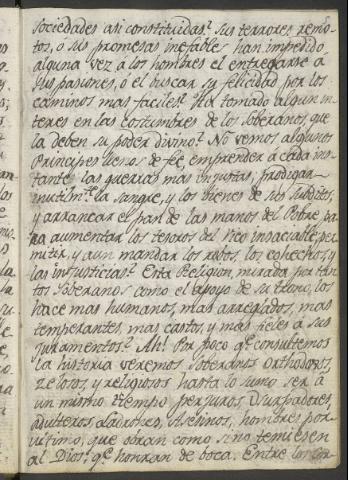 sociedades asi constituidas? Sus terrores remo-
tos, ó sus promesas inefables han impedido
alguna vez á los hombres el entregarse á
sus pasiones, ó el buscar su felicidad por los
caminos mas faciles? Ha tomado algun in-
teres en las costumbres de los soberanos, que
la deben su poder divino? No vemos algunos
Principes llenos de fee, emprender á cada ins-
tante las guerras mas injustas, prodigar
inutilmte. la sangre, y los bienes de sus subditos,
y arrancar el pan de las manos del Pobre pa-
ra aumentar los tesoros del rico insaciable, per-
mitir, y aun mandar los robos, los cohechos, y
las injusticias? Esta Religion, mirada por tan-
tos Soberanos como el apoyo de su trono, los
hace mas humanos, mas arreglados, mas
temperantes, mas castos, y mas fieles á sus
juramentos? Ah! Por poco qe. consultemos
la historia veremos soberanos orthodoxos,
zelosos, y religiosos hasta lo sumo ser á
un mismo tiempo perjuros, Usurpadores,
adulteros, Ladrones, Asesinos, hombres por
ultimo, que obran como si no temiesen
al Dios qe. honran de boca. Entre los